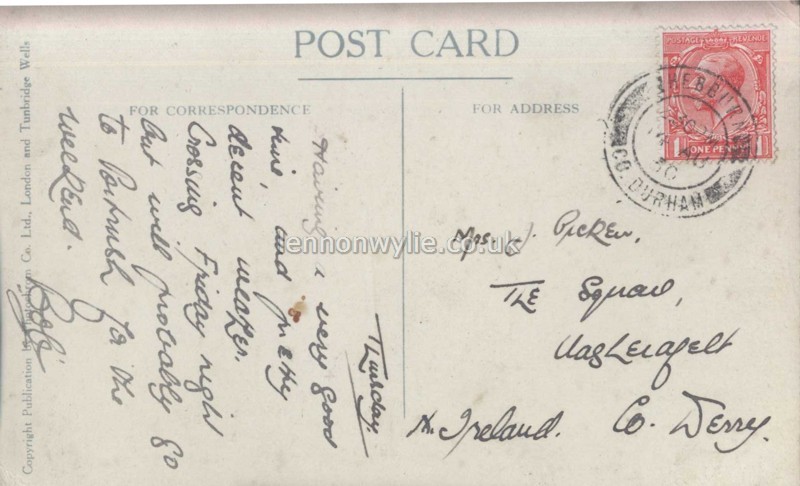 POST CARD
FOR CORRESPONDENCE
FOR ADDRESS
Thursday.
Having a very good
time, and pretty
decent weather.
Crossing Friday night
but will probably go
to Portrush for the
weekend.
Mrs. J. Picken,
The Square,
Magherafelt
Co. Derry.
N. Ireland.
POSTAGE REVENUE
1 ONE PENNY 1
HEBBURN
AU
30
CO. DURHAM
Copyright Publication by Co. Ltd., London and Tunbridge Wells
lennonwylie.co.uk